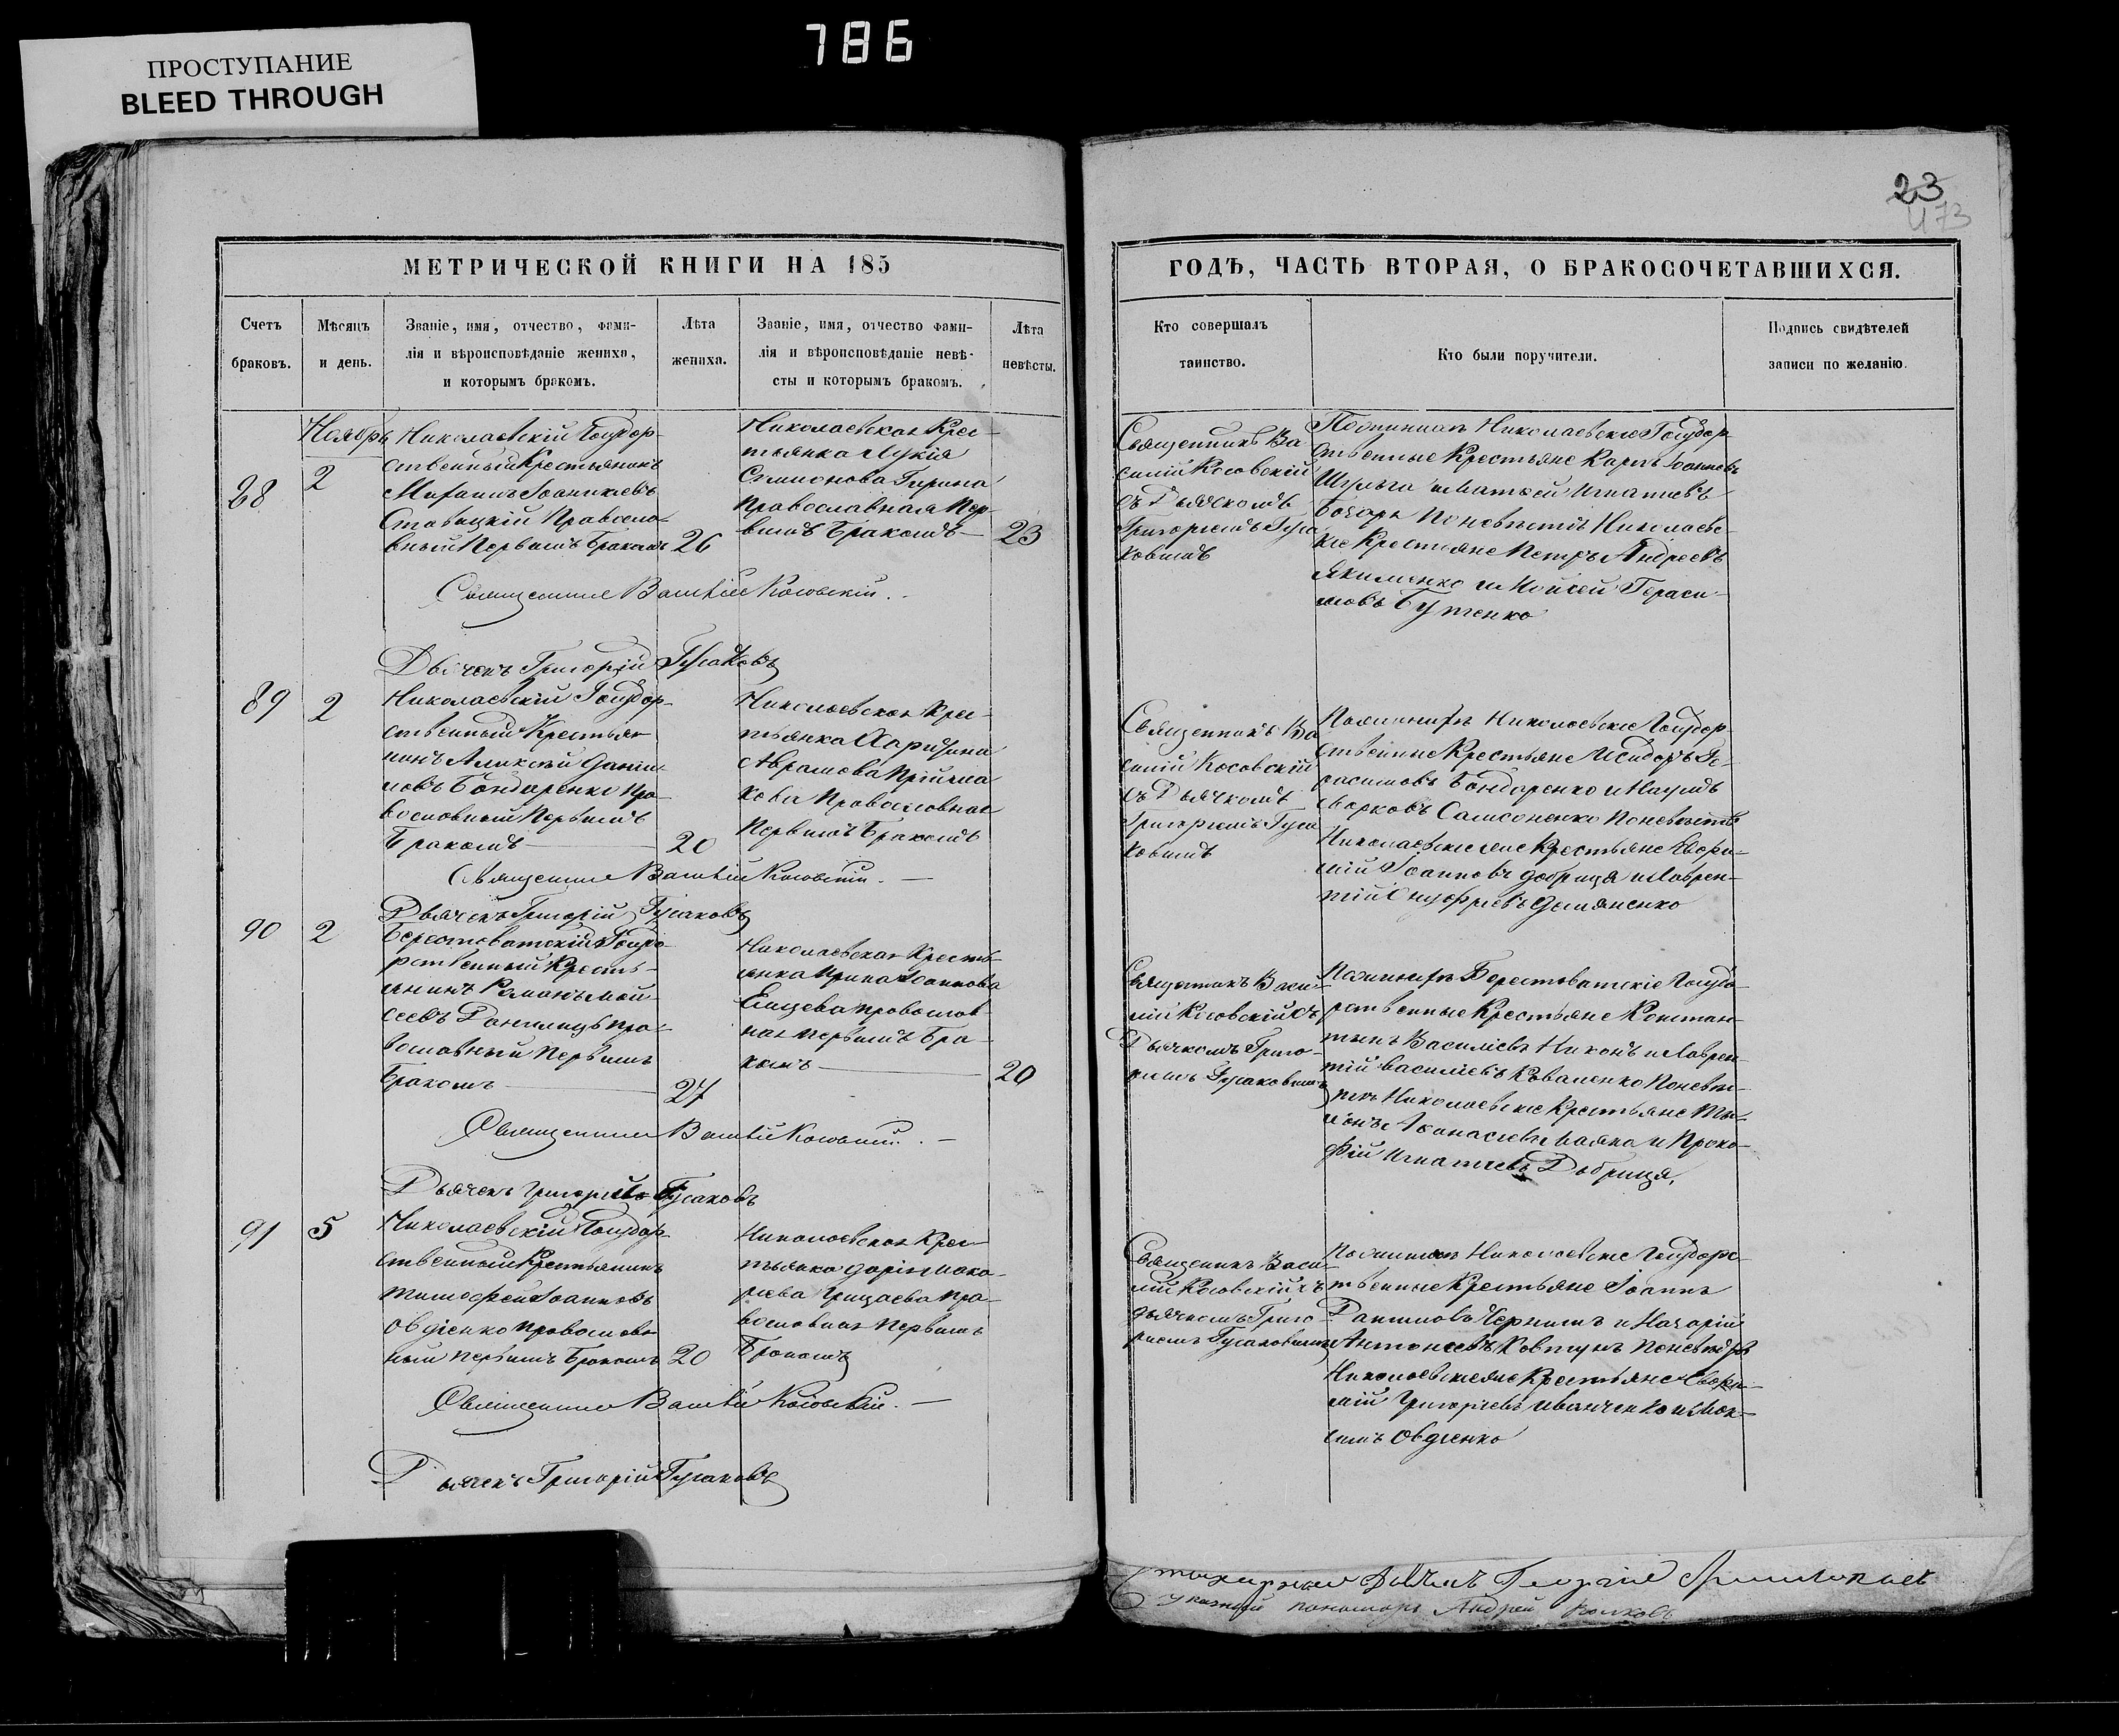 786
ПРОСТУПАНИЕ
BLEED THROUGH
23
473
МЕТРИЧЕСКОЙ КНИГИ НА 185
ГОДЪ, ЧАСТЬ ВТОРАЯ, О БРАКОСОЧЕТАВШИХСЯ.
Счетъ
браковъ.
Мѣсяцъ
и день.
Званіе, имя, отчество, фами-
лія и вѣроисповѣданіе жениха,
и которымъ бракомъ.
Лѣта
жениха.
Званіе, имя, отчество фами-
лія и вѣроисповѣданіе невѣ-
сты и которымъ бракомъ.
Лѣта
невѣсты.
Кто совершалъ
таинство.
Кто были поручители.
Подпись свидѣтелей
записи по желанію.
Ноябрь
88
2
Николаевскій Государ-
ственный Крестьянинъ
Іоаникіевъ
Ставицкій Правосла-
вный Первымъ Бракомъ
26
Николаевская Крес-
тьянка Лукія
Симонова
Православная Пер-
вымъ Бракомъ
23
Священникъ Ва
силій Косовскій
съ Дьячкомъ
Григоріемъ Гуса
ковымъ
Николаевскіе Государ
ственные Крестьяне Карпъ Іоанновъ
Шульга и Матѳей Игнатіевъ
Бочаръ По невѣстѣ Николаевс-
кіе Крестьяне Петръ Андреевъ
Якименко и Моисей Гераси-
мовъ Бутенко
Священникъ Василій Косовскій.
Дьячекъ Григорій Гусаковъ
89
2
Николаевскій Государ-
ственный Крестья-
нинъ Алексѣй Дани-
ловъ Бондаренко Пра-
вославный Первымъ
Бракомъ
20
Николаевская Крес-
тьянка Харитина
Аврамова
кова Православная
Первымъ Бракомъ
Священникъ Ва
силій Косовскій
съ Дьячкомъ
Григоріемъ Гуса
ковымъ
По женихѣ Николаевскіе Государ-
ственные Крестьяне Исидоръ Ге-
расимовъ Бондаренко и Наумъ
Марковъ Самсоненко По невѣстѣ
Николаевскіе Крестьяне Евфи-
мій Іоанновъ Добрица и Лаврен-
тій Онуфріевъ Демяненко
Священникъ Василій Косовскій.
Дьячекъ Григорій Гусаковъ
90
2
Берестоватскій Госуда-
рственный Кресть-
янинъ Романъ Мои-
сеевъ Пра-
вославный Первымъ
Бракомъ
27
Николаевская Кресть-
янка Ирина Іоаннова
Православ-
ная Первымъ Бра-
комъ
20
Священникъ Васи-
лій Косовскій съ
Дьячкомъ Григо-
ріемъ Гусаковымъ
По женихѣ Берестоватскіе Госуда-
рственные Крестьяне Констан-
тинъ Василіевъ и Лаврен-
тій Василіевъ Коваленко По невѣс-
тѣ Николаевскіе Крестьяне
Аѳанасіевъ и Проко-
фій Игнатіевъ Добрица.
Священникъ Василій Косовскій.
Дьячекъ Григорій Гусаковъ
91
5
Николаевскій Государ-
ственный Крестьянинъ
Тимофей Іоанновъ
Овдіенко Православ-
ный Первымъ Бракомъ
20
Николаевская Крес-
тьянка Дарія Мака-
ріева Грицаева Пра-
вославная Первымъ
Бракомъ
Священникъ Васи-
лій Косовскій съ
Дьячкомъ Григо-
ріемъ Гусаковымъ
По женихѣ Николаевскіе Государс-
твенные Крестьяне Іоаннъ
Даниловъ и Назарій
Антоніевъ Ковтунъ По невѣстѣ
Николаевскіе Крестьяне Евфи-
мій Григоріевъ Иванченко и Мак-
симъ Овдіенко
Священникъ Василій Косовскій.
Дьячекъ Григорій Гусаковъ
Дьячекъ Георгій
Указный пономарь Андрей Волковъ